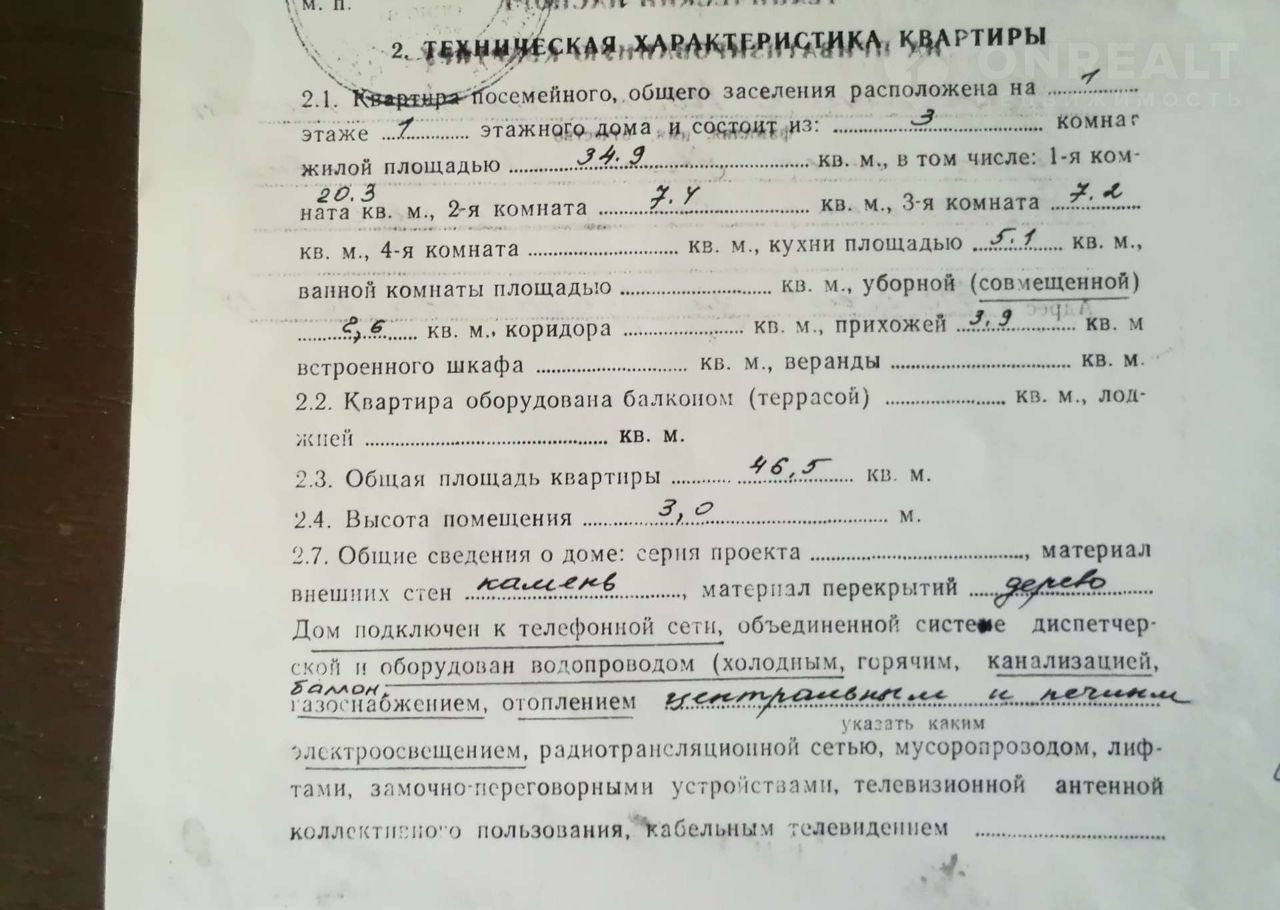 М. П.
2. ТЕХНИЧЕСКАЯ ХАРАКТЕРИСТИКА КВАРТИРЫ
ONREALT
НЕДВИЖИМОСТЬ
2.1. Квартира посемейного, общего заселения расположена на 1
этаже 1 этажного дома и состоит из: 3 комнат
жилой площадью 34.9 кв. м., в том числе: 1-я ком-
20.3
ната кв. м., 2-я комната 7.4 кв. м., 3-я комната 7.2
кв. м., 4-я комната кв. м., кухни площадью 5.1 кв. м.,
ванной комнаты площадью кв. м., уборной (совмещенной)
2,6 кв. м., коридора кв. м., прихожей 3,9 кв. м
встроенного шкафа кв. м., веранды кв. м.
2.2. Квартира оборудована балконом (террасой) кв. м., лод-
жией кв. м.
2.3. Общая площадь квартиры 46,5 кв. м.
2.4. Высота помещения 3,0 м.
2.7. Общие сведения о доме: серия проекта , материал
внешних стен камень, материал перекрытий дерево
Дом подключен к телефонной сети, объединенной системе диспетчер-
ской и оборудован водопроводом (холодным, горячим, канализацией,
баллон.
газоснабжением, отоплением центральным и печным
указать каким
электроосвещением, радиотрансляционной сетью, мусоропроводом, лиф-
тами, замочно-переговорными устройствами, телевизионной антенной
коллективного пользования, кабельным телевидением